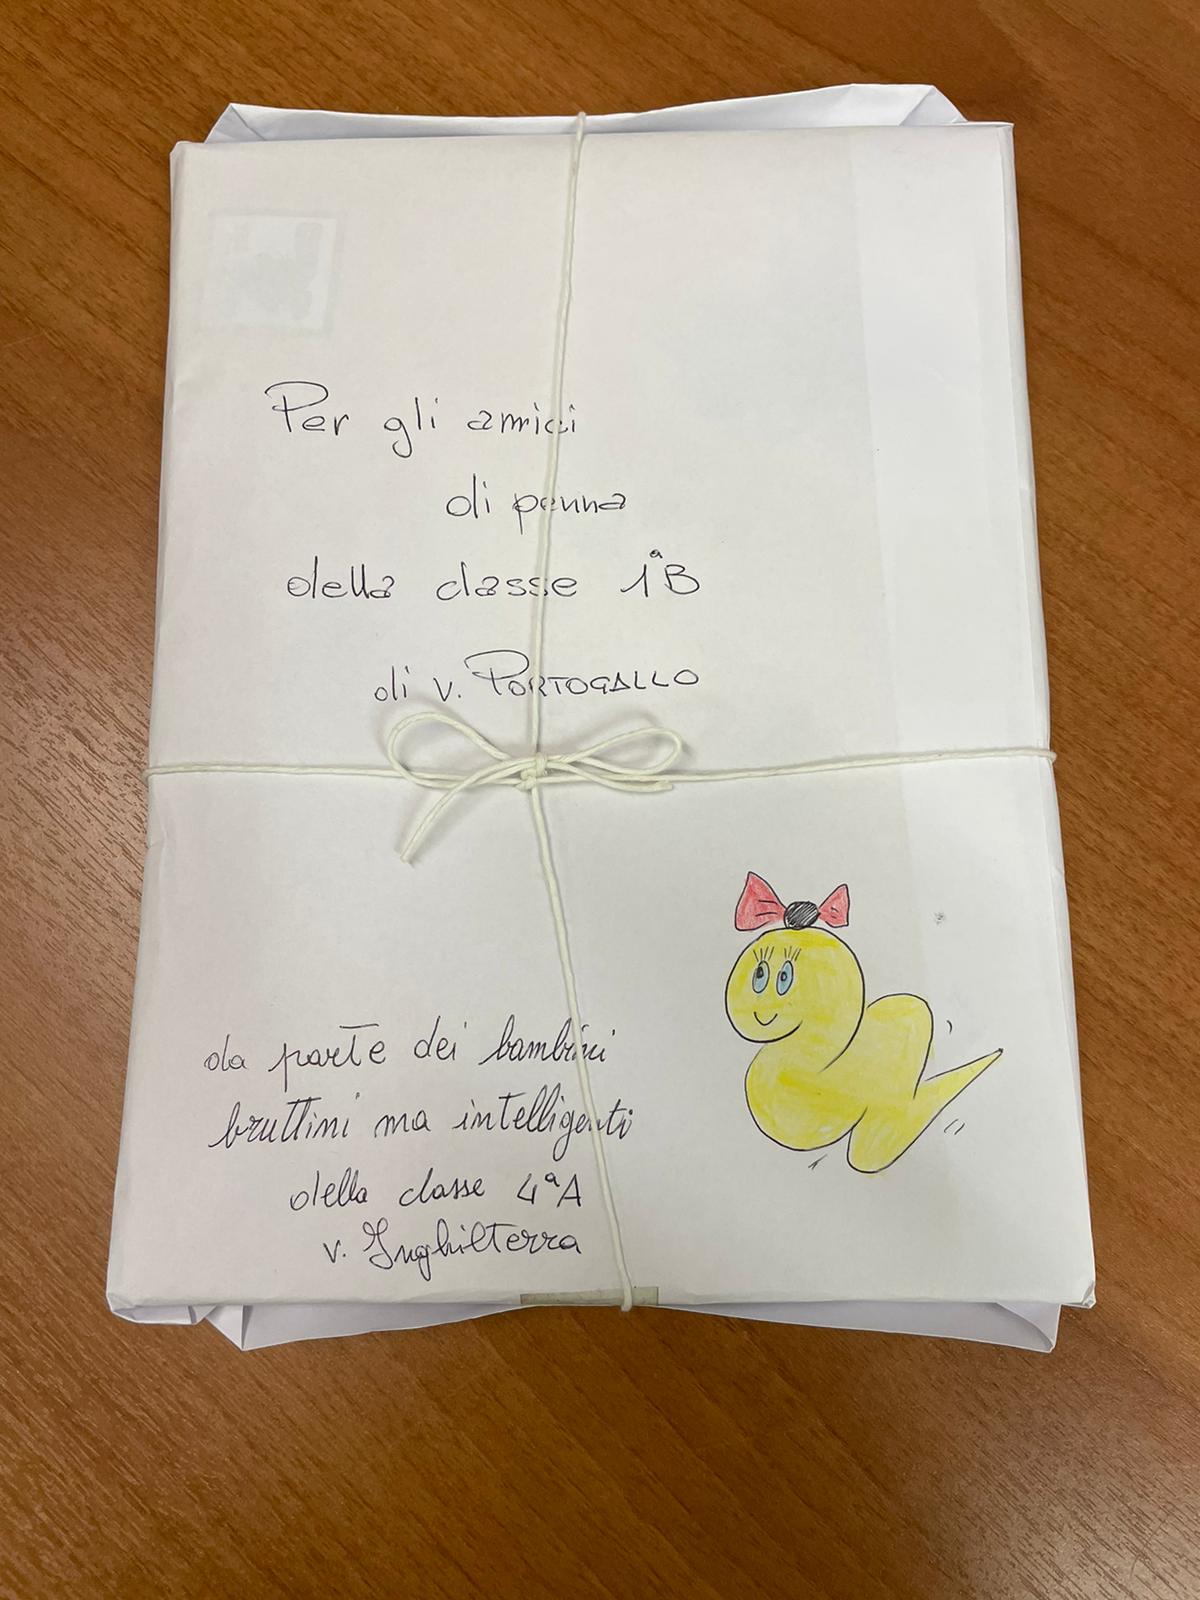 Per gli amici
di penna
della classe 1ªB
di v. PORTOGALLO
da parte dei bambini
bruttini ma intelligenti
della classe 4ªA
v. Inghilterra